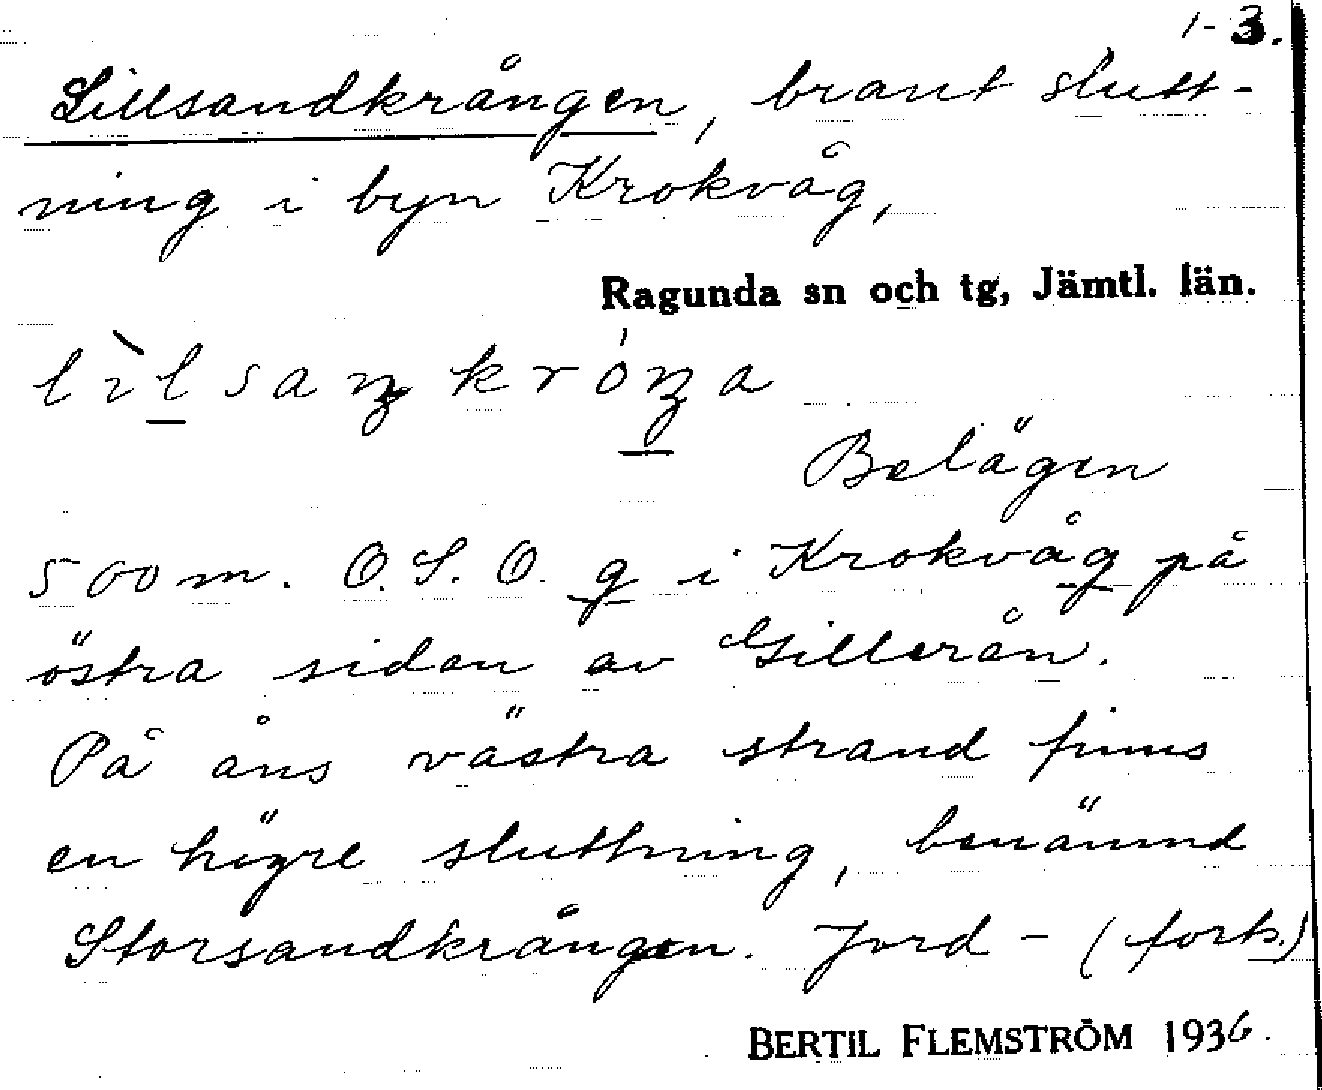 1-3.
Lillsandkrången, brant slutt-
ning i byn Krokvåg,
Ragunda sn och tg, Jämtl. län.
Belägen
500 m. O.S.O. g i Krokvåg på
östra sidan av Gillerån.
På åns västra strand finns
en högre sluttning, benämnd
Storsandkrången. Jord - (forts.)
BERTIL FLEMSTRÖM 1936.